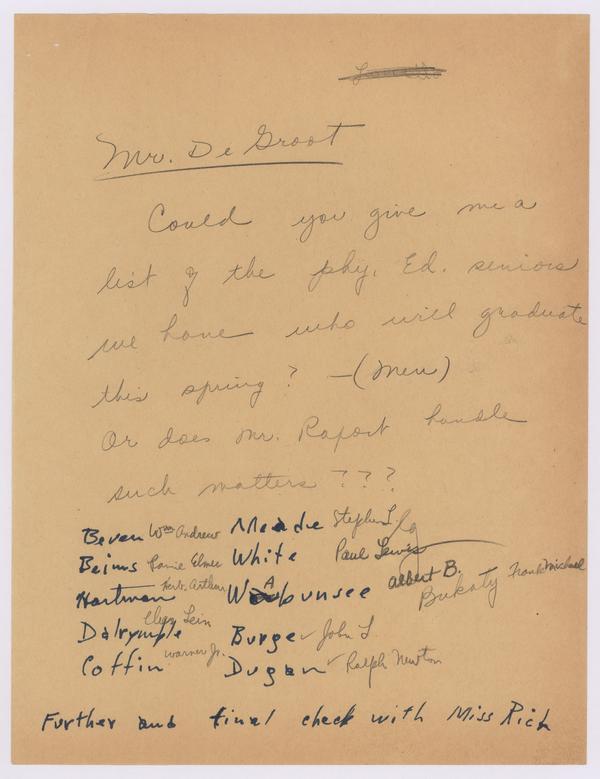 Mr. De Groot
Could you give me a
list of the phy. Ed. seniors
we have who will graduate
this spring? — (Men)
Or does Mr. Raport handle
such matters ???
Beven Wm Andrew Meade Stephen L.
Beims Elmer White Paul Lewis
Hartman Herb. Arthur Wabunsee Albert B. Bukaty Frank Michael
Dalrymple Burge ✓ John L
Coffin Warner Jr. Dugan ✓ Ralph Newton
Further and final check with Miss Rich